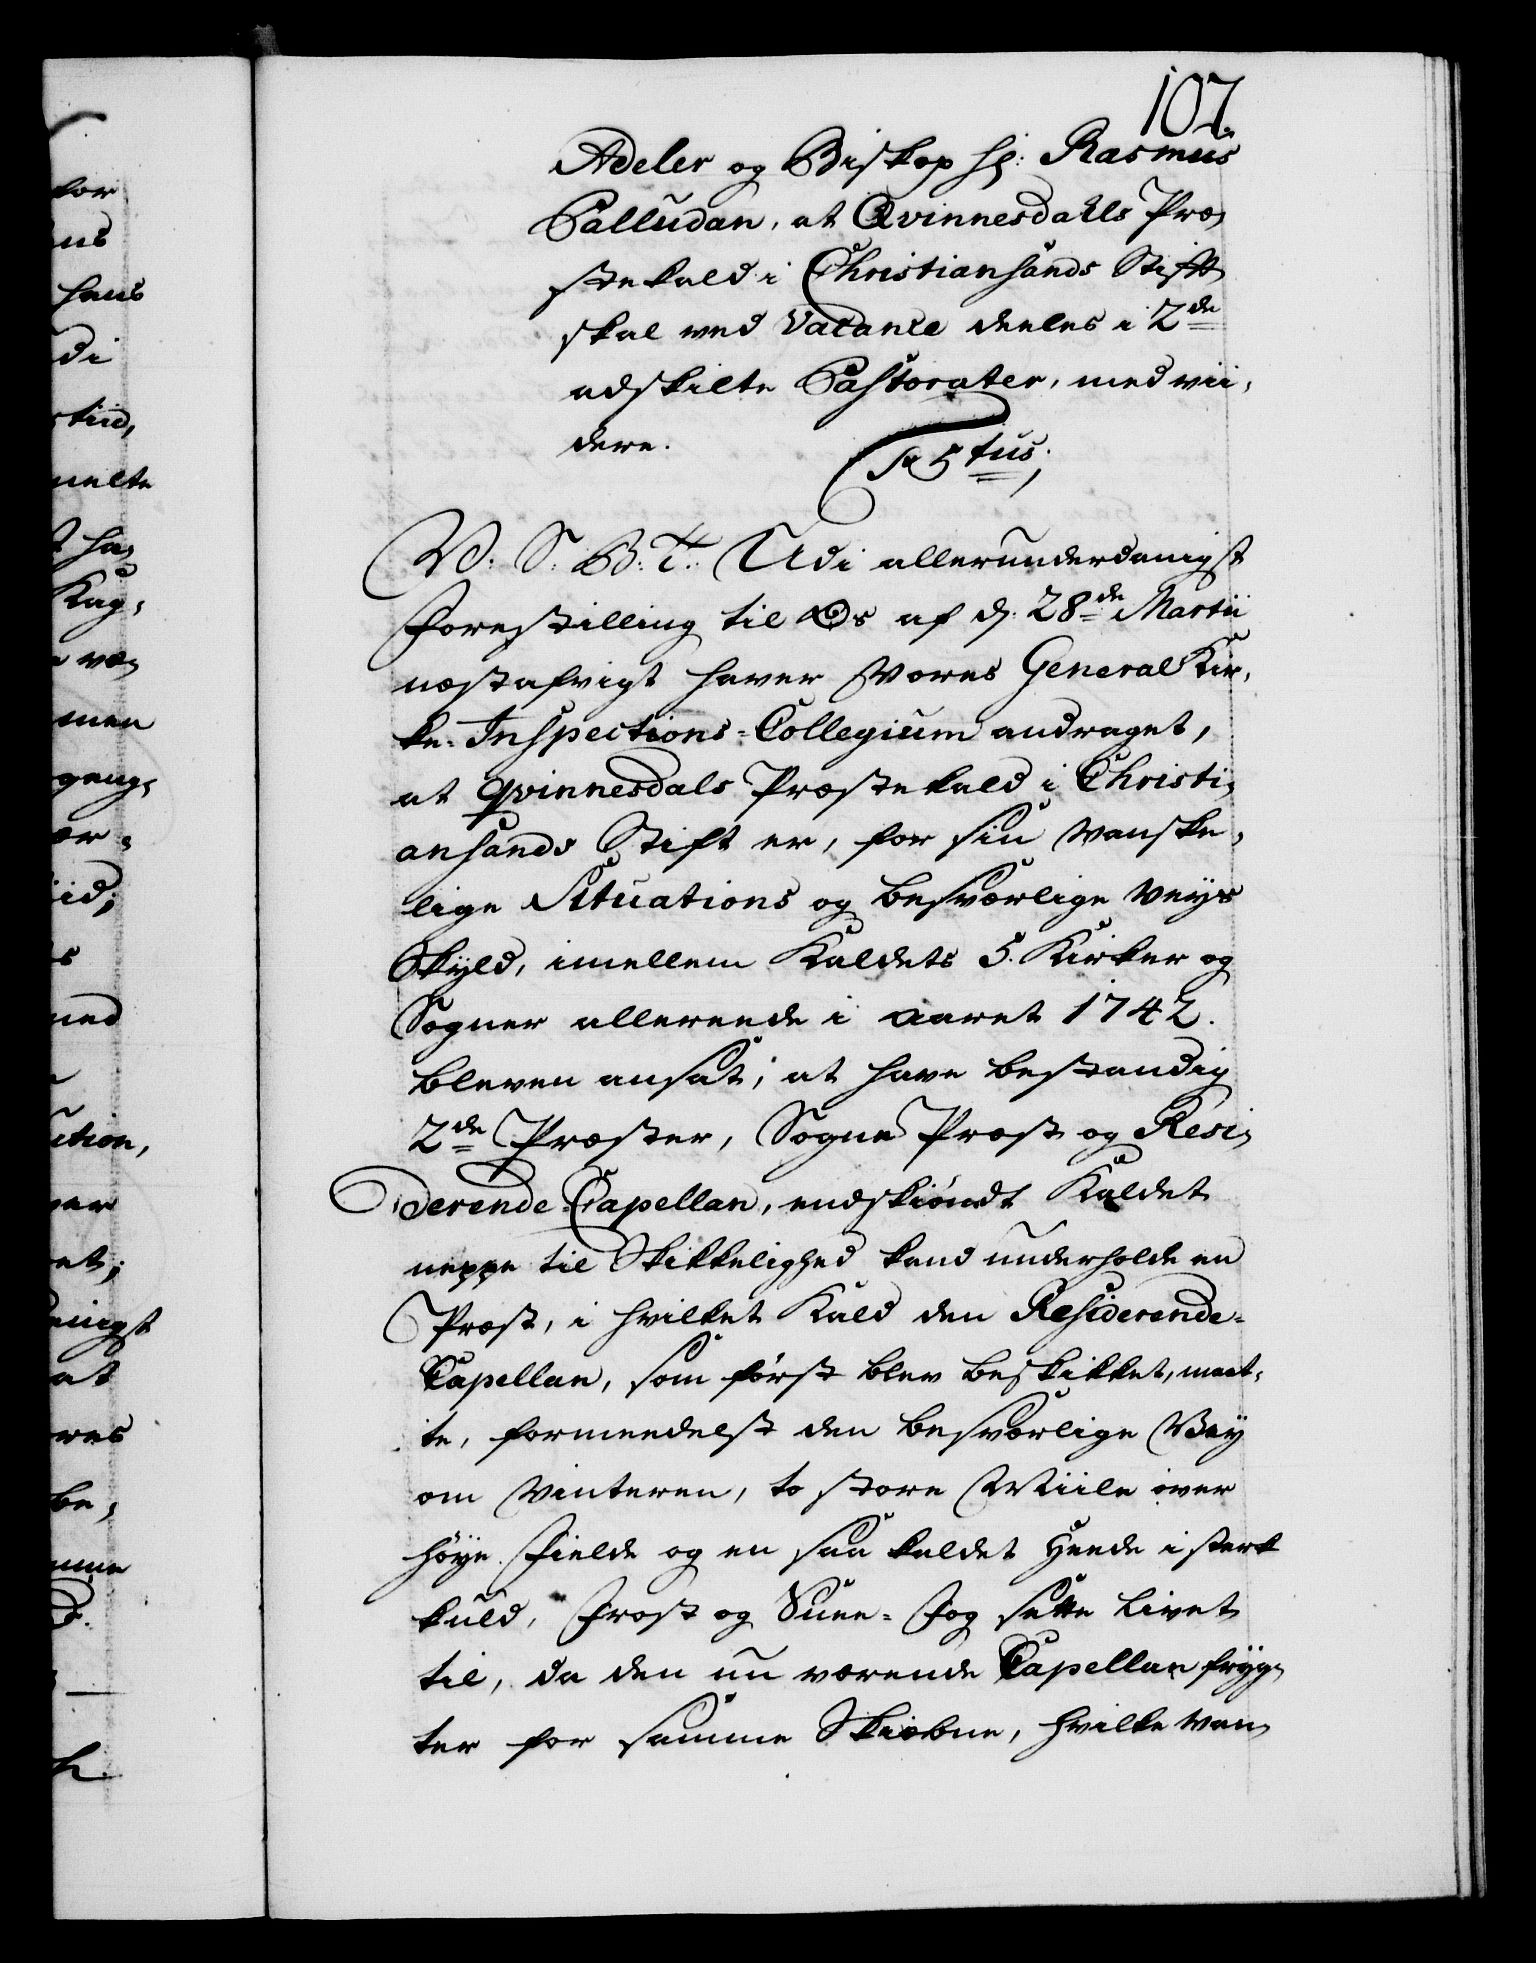 107.
Adeler og Biskop Hr: Rasmus
Palludan, at Qvinnesdahls Præ,
stekald i Christiansands Stift
skal ved Vacance deeles i 2de
adskilte Pastorater, med vii,
dere.
V: S: B: T: Udi allerunderdanigst
Forestilling til Os af d. 28de Martii
næstafvigt haver Vores General Kir,
ke-Inspections-Collegium andraget,
at Qvinnesdals Præstekald i Christi,
ansands Stift er, for sin vanske,
lige Situations og besværlige Veys
Skyld, imellem Kaldets 5. Kirker og
Sogner allereede i Aaret 1742.
bleven ansat, at have bestandig
2de Præster, Sogne Præst og Resi,
derende-Capellan, endskiöndt Kaldet
neppe til Skikkelighed kand underholde en
Præst, i hvilket Kald den Residerende-
Capellan, som först blev beskikket, maat,
te, formeedelst den besværlige Vey
om Vinteren, to store Miile over
höye Fielde og en saa kaldet Heede i sterk
kuld, Frost og Snee-Fog sætte Livet
til, da den nu værende Capellan fryg,
ter for samme Skiebne, hvilke van,
for
hans
di
stiid,
melte
Kag,
men
gang,
er,
iid;
med
ution,
et;
enigst
at
be,